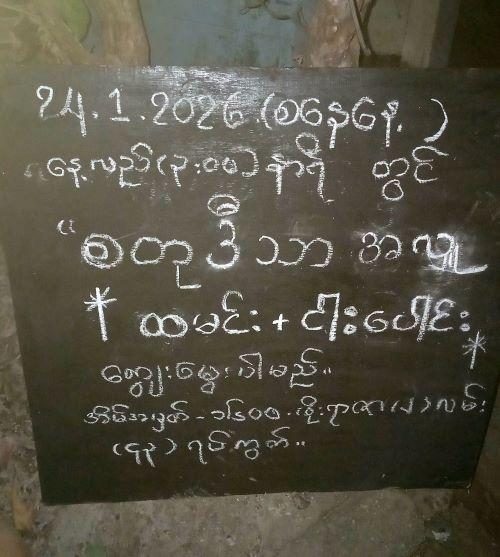 24.1.2026 (စနေနေ့)
နေ့လည် (၃:၀၀) နာရီ တွင်
"စတုဒီသာ အလှူ
* ထမင်း + ငါးပေါင်း *
ကျွေးမွေးပါမည်။
အိမ်အမှတ် - ၁၆၀၀ ။ ဗိုလ်ရာဇာ (၂) လမ်း
(၄၃) ရပ်ကွက်။